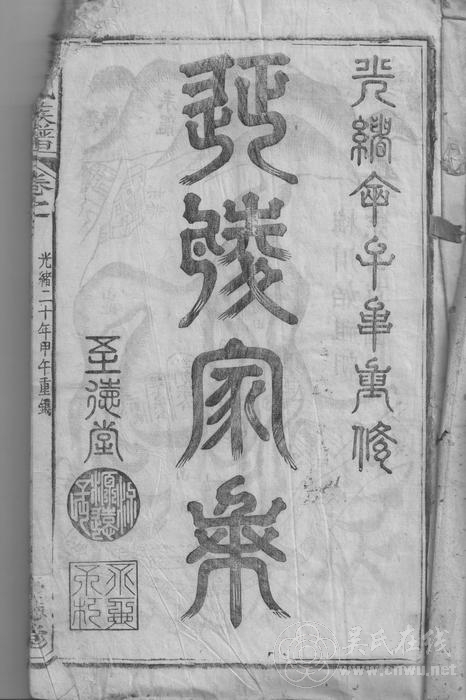 光緒甲午年重修
延陵家乘
至德堂
源遠流長
族譜
光緒二十年甲午重鐫
德堂
吴氏在线
www.cnwu.net